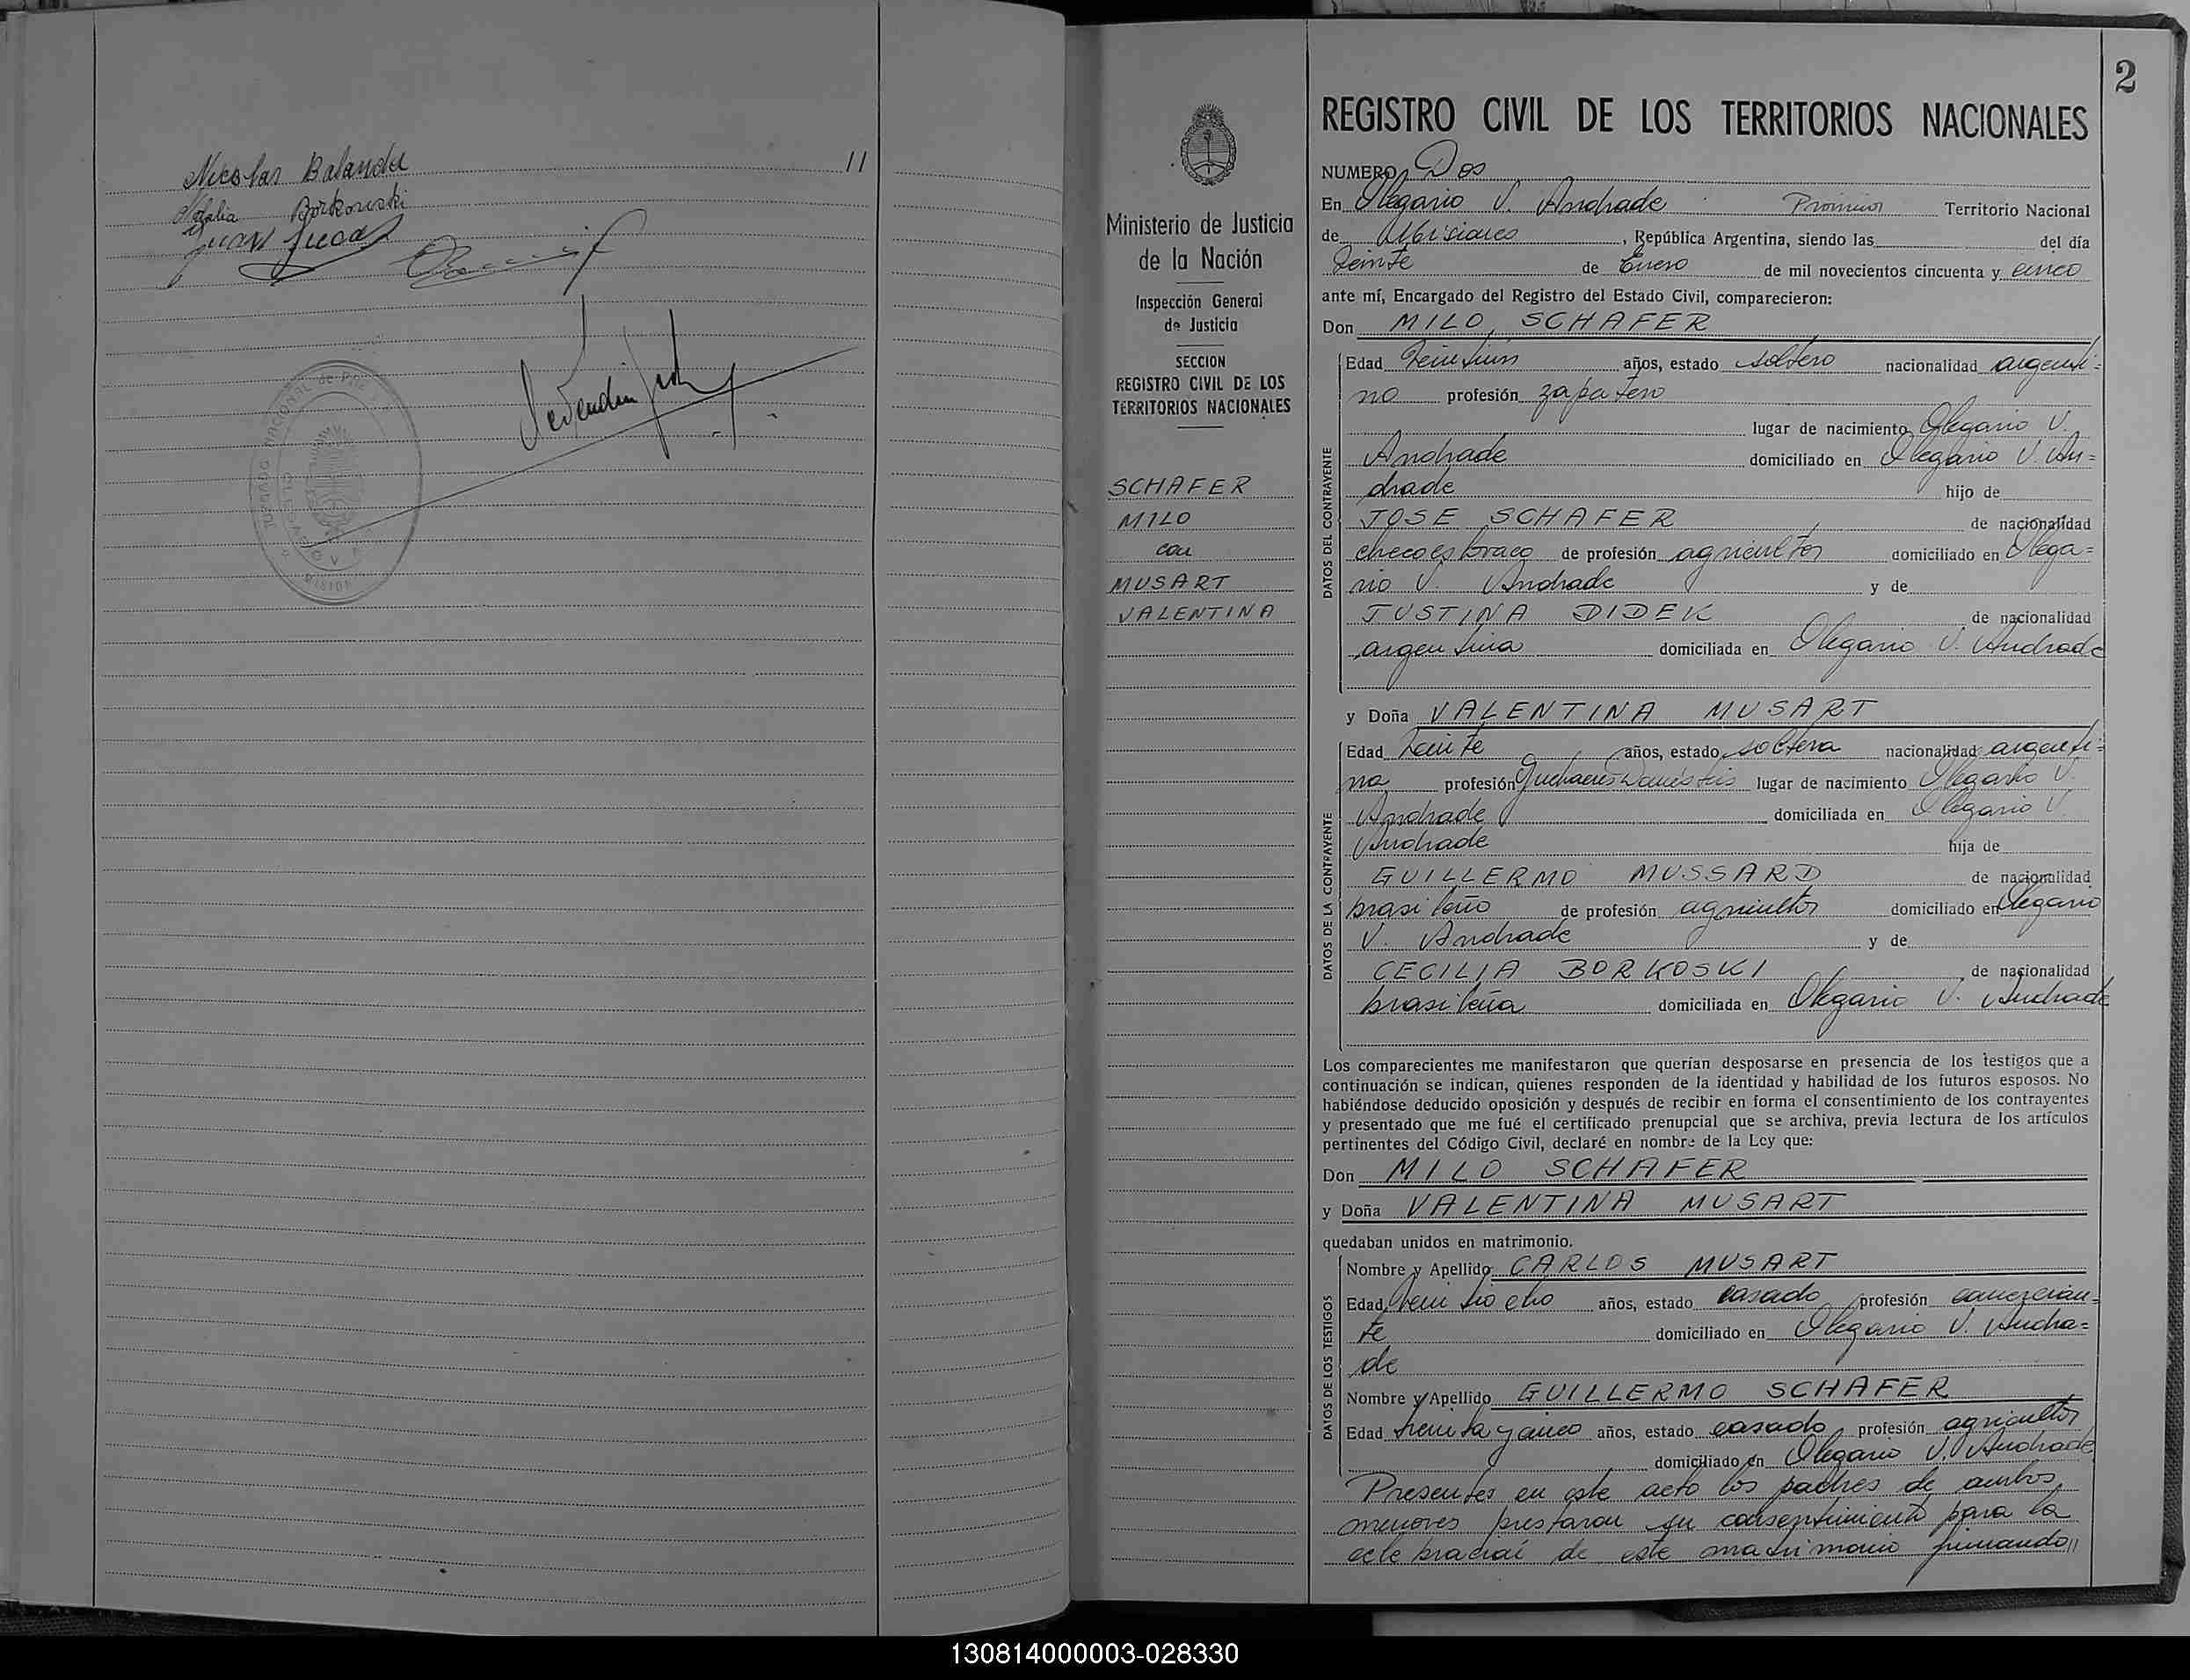 Nicolas Balanda //
Natalia Borkowski
Juan
JUZGADO NACIONAL de PAZ
MISIONES
2
REGISTRO CIVIL DE LOS TERRITORIOS NACIONALES
NUMERO Dos
En Olegario V. Andrade Provincia Territorio Nacional
de Misiones, República Argentina, siendo las del día
Veinte de Enero de mil novecientos cincuenta y cinco
ante mí, Encargado del Registro del Estado Civil, comparecieron:
Don MILO, SCHAFER
Edad Veintiun años, estado soltero nacionalidad argenti=
no profesión zapatero
lugar de nacimiento Olegario V.
Andrade domiciliado en Olegario V. An=
drade hijo de
JOSE SCHAFER de nacionalidad
checoeslovaco de profesión agricultor domiciliado en Olega=
rio V. Andrade y de
JUSTINA DIDEK de nacionalidad
argentina domiciliada en Olegario V. Andrade
y Doña VALENTINA MUSART
Edad Veinte años, estado soltera nacionalidad argenti=
na profesión Quehaceres Domésticos lugar de nacimiento Olegario V.
Andrade domiciliada en Olegario V.
Andrade hija de
GUILLERMO MUSSARD de nacionalidad
brasileño de profesión agricultor domiciliado en Olegario
V. Andrade y de
CECILIA BORKOSKI de nacionalidad
brasileña domiciliada en Olegario V. Andrade
Los comparecientes me manifestaron que querían desposarse en presencia de los testigos que a
continuación se indican, quienes responden de la identidad y habilidad de los futuros esposos. No
habiéndose deducido oposición y después de recibir en forma el consentimiento de los contrayentes
y presentado que me fué el certificado prenupcial que se archiva, previa lectura de los artículos
pertinentes del Código Civil, declaré en nombre de la Ley que:
Don MILO SCHAFER
y Doña VALENTINA MUSART
quedaban unidos en matrimonio.
Nombre y Apellido CARLOS MUSART
Edad Veintiocho años, estado casado profesión comercian=
te domiciliado en Olegario V. Andra=
de
Nombre y Apellido GUILLERMO SCHAFER
Edad treinta y cinco años, estado casado profesión agricultor
domiciliado en Olegario V. Andrade
Presentes en este acto los padres de ambos
menores prestaron su consentimiento para la
celebración de este matrimonio firmando//
DATOS DEL CONTRAYENTE
DATOS DE LA CONTRAYENTE
DATOS DE LOS TESTIGOS
Ministerio de Justicia
de la Nación
Inspección General
de Justicia
SECCION
REGISTRO CIVIL DE LOS
TERRITORIOS NACIONALES
SCHAFER
MILO
con
MUSART
VALENTINA
130814000003-028330